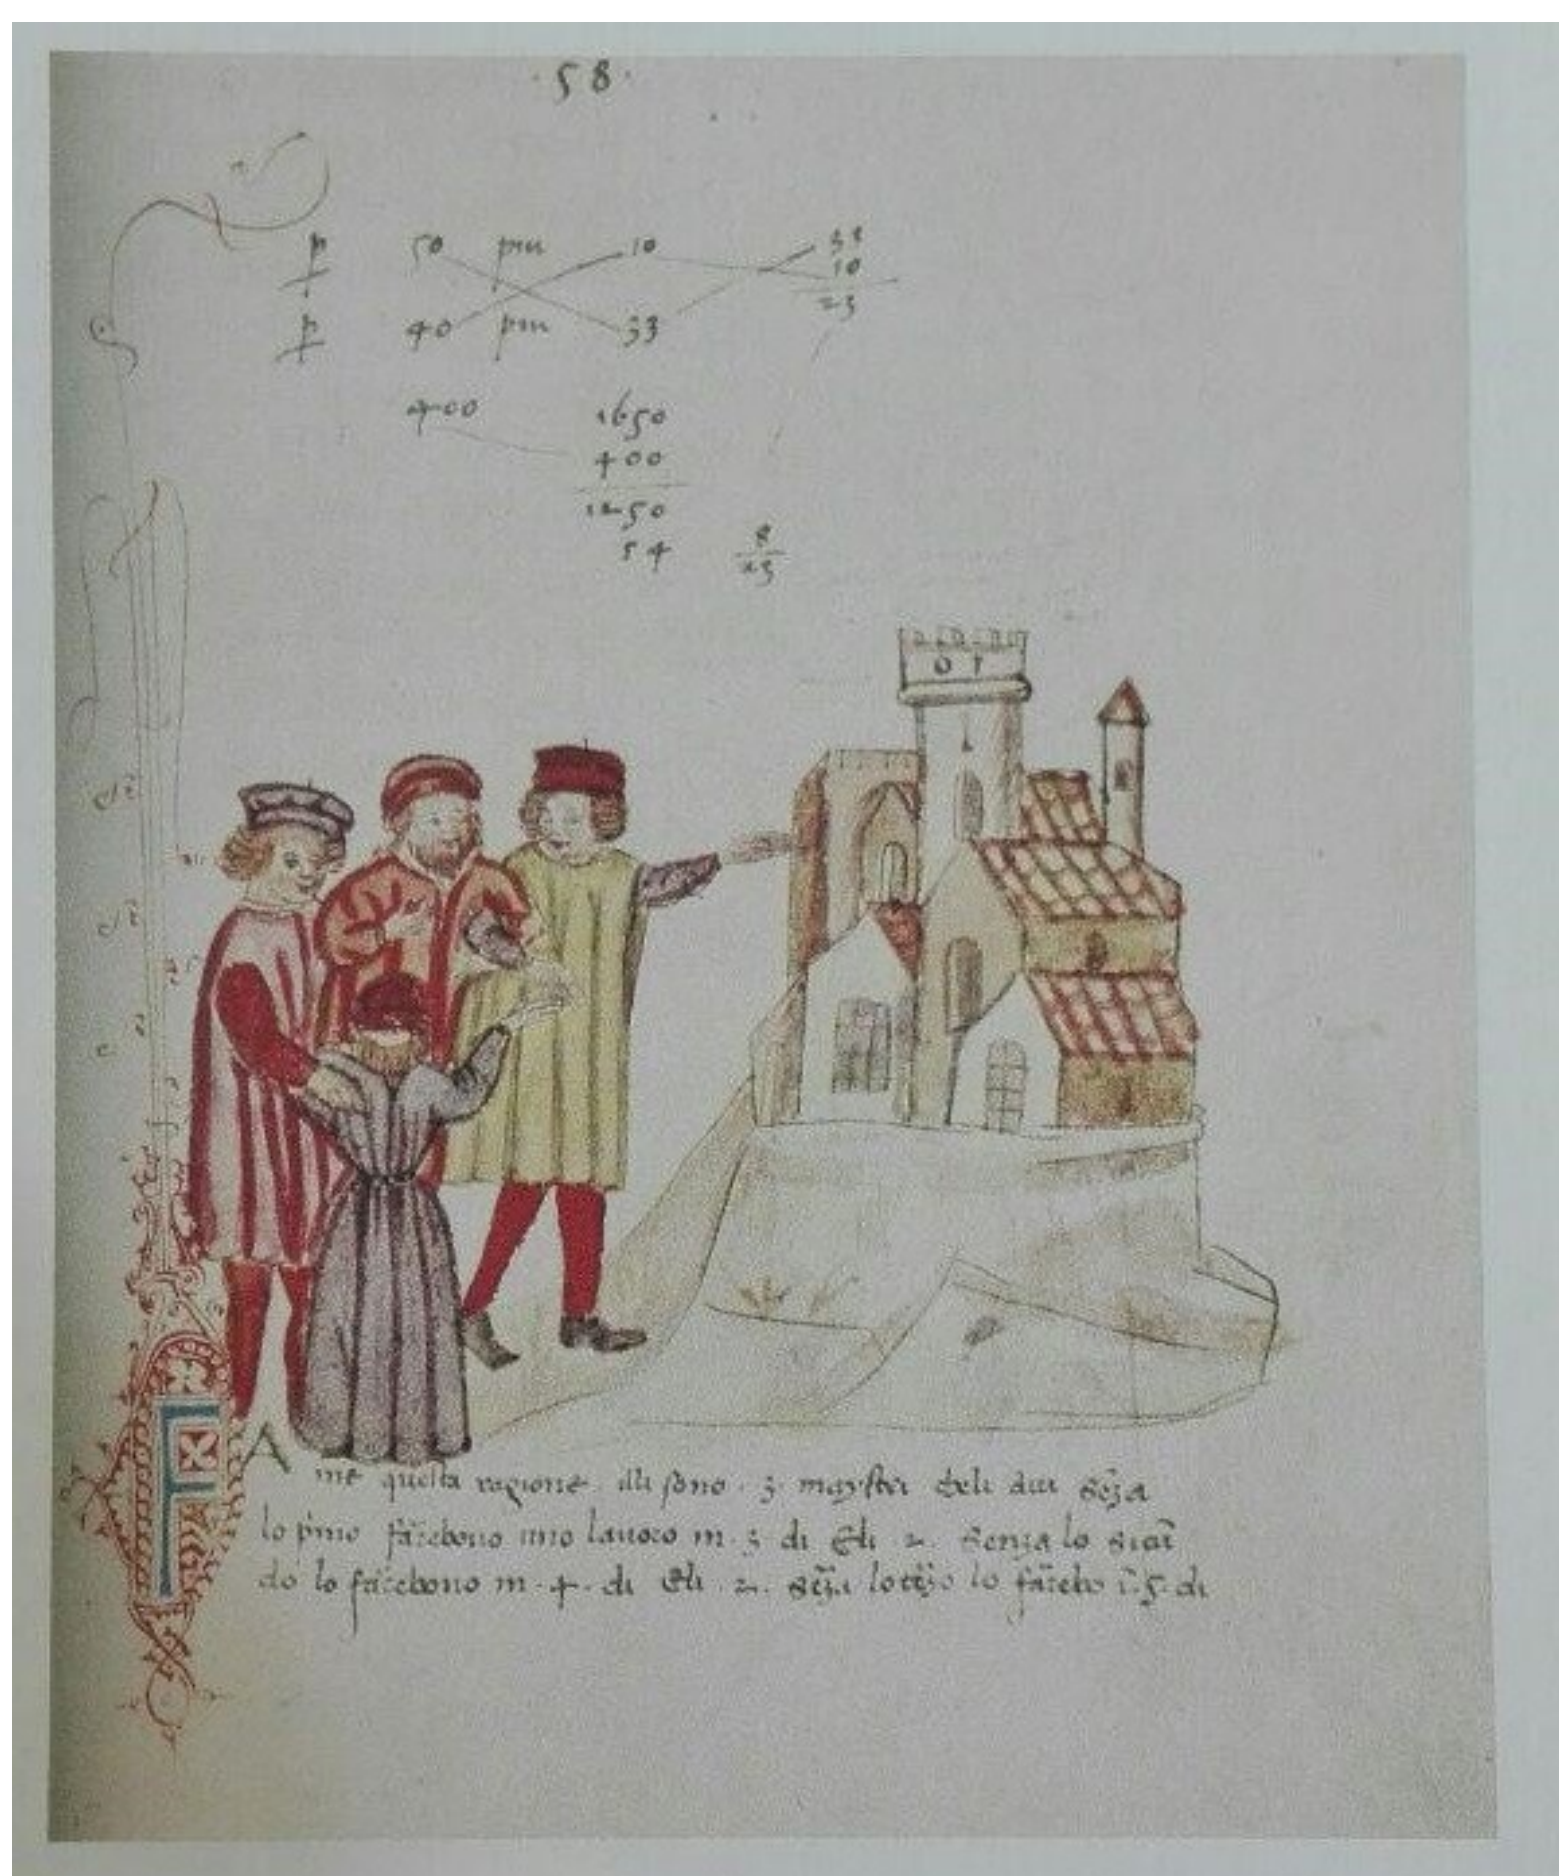 · 58 ·
p 50 piu 10 38
10
23
p 40 piu 33
400 1650
400
1250
54 8
23
O I
FA
me questa ragione. illi sono. 3. maystri deli dui senza
lo pmo farebono uno lauoro in. 3. di Eli. 2. senza lo
do lo farebono in. 4. di Eli. 2. lo lo i. 5. di